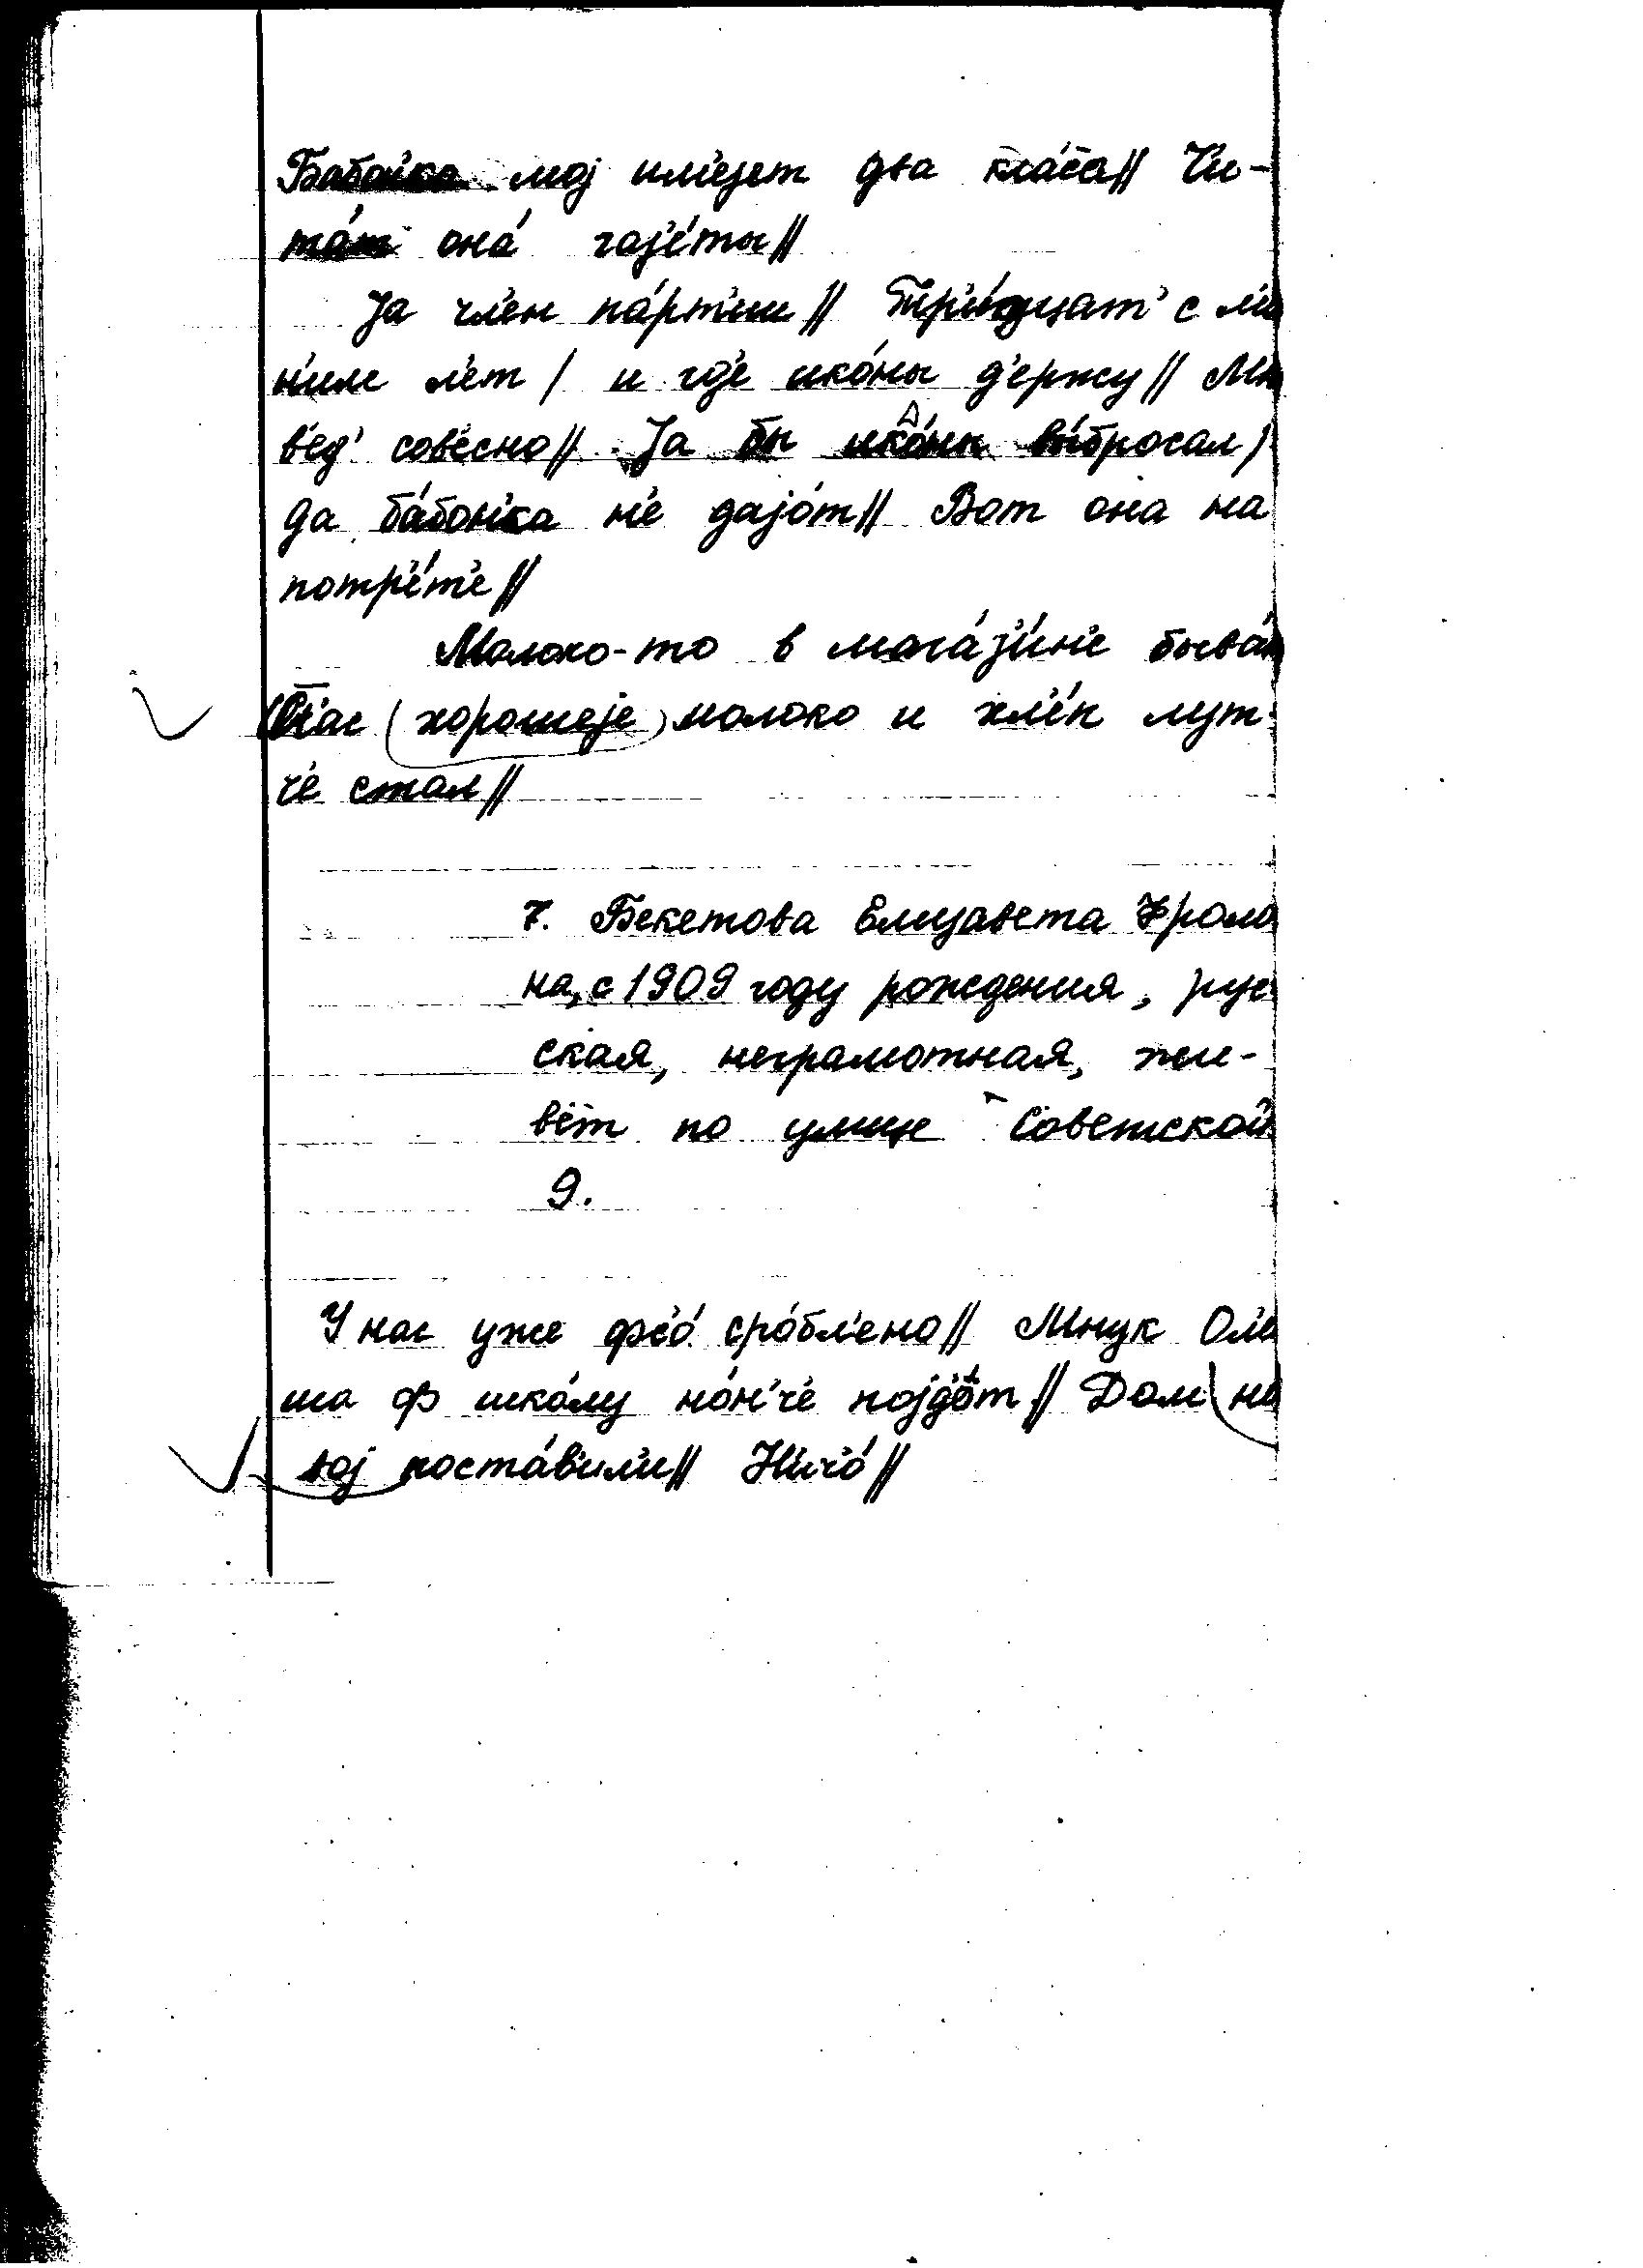 Бабонка мој имејет два кла́са // Чи-
та́т она́ газе́ты //
Ја чл'ен па́рт'ии // Три́дцат' с
л'ет / и гд'е ико́ны д'ержу //
в'ед' сов'есно // Ја бы ико́нк вы́бросал /
да ба́бонка н'е даjо́т // Вот она на
потр'е́т'е //
Молоко-то в мага́з'ин'е быва́
(хорошеје) молоко и хл'еп лут-
ч'е стал //
7. Бекетова Елизавета Фроло
на, с 1909 году рождения, рус
ская, неграмотная, жи-
вёт по улице Советской
9.
У нас уже фс'о́ сро́бл'ено // Мнук Ол'е
ша ф шко́лу но́н'ч'е појдот // Дом но
вој поста́в'ил'и // Н'ич'о́ //